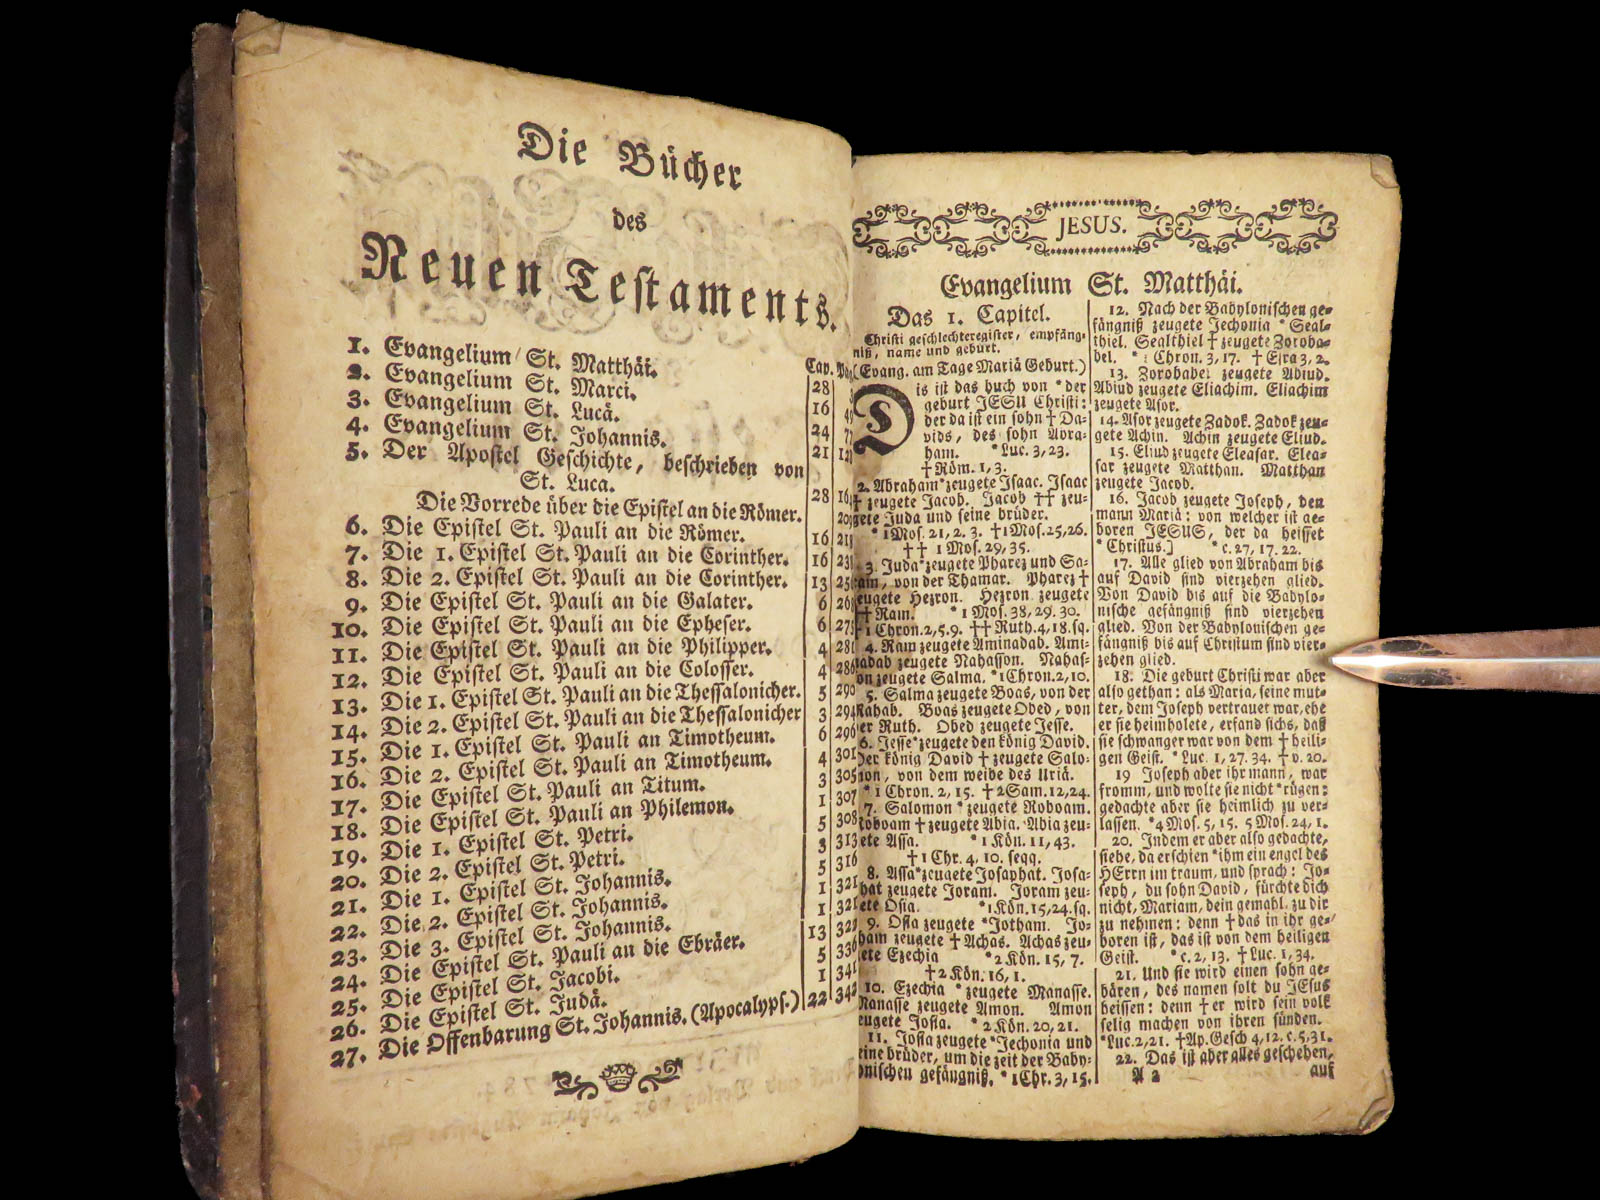 Die Bücher
des
Neuen Testaments.
Cap. Pag.
1. Evangelium St. Matthäi. 28
2. Evangelium St. Marci. 16
3. Evangelium St. Lucä. 24
4. Evangelium St. Johannis. 21
5. Der Apostel Geschichte, beschrieben von
St. Luca. 28
Die Vorrede über die Epistel an die Römer.
6. Die Epistel St. Pauli an die Römer. 16
7. Die 1. Epistel St. Pauli an die Corinther. 16
8. Die 2. Epistel St. Pauli an die Corinther. 13
9. Die Epistel St. Pauli an die Galater. 6
10. Die Epistel St. Pauli an die Epheser. 6
11. Die Epistel St. Pauli an die Philipper. 4 281
12. Die Epistel St. Pauli an die Colosser. 4 286
13. Die 1. Epistel St. Pauli an die Thessalonicher. 5 290
14. Die 2. Epistel St. Pauli an die Thessalonicher 3 294
15. Die 1. Epistel St. Pauli an Timotheum. 6 296
16. Die 2. Epistel St. Pauli an Timotheum. 4 301
17. Die Epistel St. Pauli an Titum. 3 305
18. Die Epistel St. Pauli an Philemon. 1 307
19. Die 1. Epistel St. Petri. 5 308
20. Die 2. Epistel St. Petri. 3 313
21. Die 1. Epistel St. Johannis. 5 316
22. Die 2. Epistel St. Johannis. 1 321
23. Die 3. Epistel St. Johannis. 1 321
24. Die Epistel St. Pauli an die Ebräer. 13 322
25. Die Epistel St. Jacobi. 5 336
26. Die Epistel St. Judä. 1 341
27. Die Offenbarung St. Johannis. (Apocalyps.) 22 342
JESUS.
Evangelium St. Matthäi.
Das 1. Capitel.
Christi geschlechteregister, empfäng-
niß, name und geburt.
(Evang. am Tage Mariä Geburt.)
Dis ist das buch von * der
geburt JESU Christi:
der da ist ein sohn † Da-
vids, des sohn Abra-
ham. *Luc. 3, 23.
† Röm. 1, 3.
2. Abraham * zeugete Isaac. Isaac
† zeugete Jacob. Jacob †† zeu-
gete Juda und seine brüder.
* 1 Mos. 21, 2. 3. †1 Mos. 25, 26.
†† 1 Mos. 29, 35.
3. Juda * zeugete Pharez und Sa-
ram, von der Thamar. Pharez †
zeugete Hezron. Hezron zeugete
†† Ram. * 1 Mos. 38, 29. 30.
† 1 Chron. 2, 5. 9. †† Ruth. 4, 18. sq.
4. Ram zeugete Aminadab. Ami-
nadab zeugete Nahasson. Nahas-
son zeugete Salma. *1 Chron. 2, 10.
5. Salma zeugete Boas, von der
Rahab. Boas zeugete Obed, von
der Ruth. Obed zeugete Jesse.
6. Jesse * zeugete den könig David.
Der könig David † zeugete Salo-
mon, von dem weibe des Uriä.
* 1 Chron. 2, 15. † 2 Sam. 12, 24.
7. Salomon * zeugete Roboam.
Roboam † zeugete Abia. Abia zeu-
gete Assa. * 1 Kön. 11, 43.
† 1 Chr. 4, 10. seqq.
8. Assa zeugete Josaphat. Josa-
phat zeugete Joram. Joram zeu-
gete Osia. * 1 Kön. 15, 24. sq.
9. Osia zeugete * Jotham. Jo-
tham zeugete † Achas. Achas zeu-
gete Ezechia * 2 Kön. 15, 7.
† 2 Kön. 16, 1.
10. Ezechia * zeugete Manasse.
Manasse zeugete Amon. Amon
zeugete Josia. * 2 Kön. 20, 21.
11. Josia zeugete * Jechonia und
seine brüder, um die zeit der Baby-
lonischen gefängniß. * 1 Chr. 3, 15.
12. Nach der Babylonischen ge-
fängniß zeugete Jechonia * Seal-
thiel. Sealthiel † zeugete Zoroba-
bel. * 1 Chron. 3, 17. † Esra 3, 2.
13. Zorobabel zeugete Abiud.
Abiud zeugete Eliachim. Eliachim
zeugete Asor.
14. Asor zeugete Zadok. Zadok zeu-
gete Achin. Achin zeugete Eliud.
15. Eliud zeugete Eleasar. Elea-
sar zeugete Matthan. Matthan
zeugete Jacob.
16. Jacob zeugete Joseph, den
mann Mariä: von welcher ist ge-
boren JESUS, der da heisset
* Christus.] * c. 27, 17. 22.
17. Alle glied von Abraham bis
auf David sind vierzehen glied.
Von David bis auf die Babylo-
nische gefängniß sind vierzehen
glied. Von der Babylonischen ge-
fängniß bis auf Christum sind vier-
zehen glied.
18. Die geburt Christi war aber
also gethan: als Maria, seine mut-
ter, dem Joseph vertrauet war, ehe
er sie heimholete, erfand sichs, daß
sie schwanger war von dem † heili-
gen Geist. * Luc. 1, 27. 34. † v. 20.
19 Joseph aber ihr mann, war
fromm, und wolte sie nicht * rügen:
gedachte aber sie heimlich zu ver-
lassen. *4 Mos. 5, 15. 5 Mos. 24, 1.
20. Indem er aber also gedachte,
siehe, da erschien * ihm ein engel des
HErrn im traum, und sprach: Jo-
seph, du sohn David, fürchte dich
nicht, Mariam, dein gemahl, zu dir
zu nehmen: denn † das in ihr ge-
boren ist, das ist von dem heiligen
Geist. * c. 2, 13. † Luc. 1, 34.
21. Und sie wird einen sohn ge-
bären, des namen solt du JEsus
heissen: denn † er wird sein volk
selig machen von ihren sünden.
*Luc. 2, 21. †Ap. Gesch 4, 12. c. 5, 31.
22. Das ist aber alles geschehen,
A 2 auf